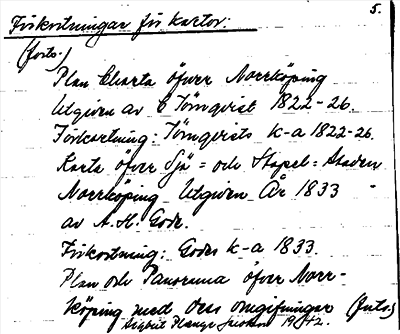 5.
Förkortningar för kartor:
(forts.)
Plan Charta öfver Norrköping
Utgiven av C Törnqvist 1822-26.
Förkortning: Törnqvists k-a 1822-26.
Karta öfver Sjö= och Stapel=Staden
Norrköping Utgiven År 1833
av A.H. Gode.
Förkortning: Godes k-a 1833.
Plan och Panorama öfver Norr-
köping med dess omgifningar (forts.)